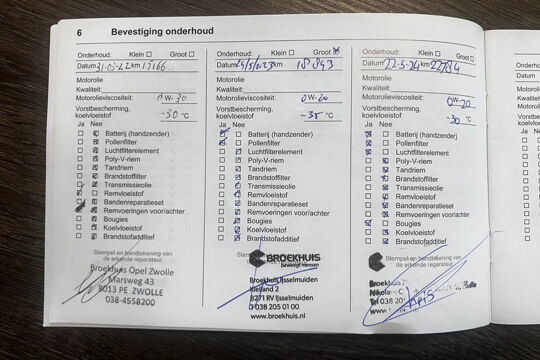 6 Bevestiging onderhoud
Onderhoud: Klein Groot
Datum 31-03-22 km 13166
Motorolie
Kwaliteit:
Motorolieviscositeit: 0W-30
Vorstbescherming,
koelvloeistof -30 °C
Ja Nee
Batterij (handzender)
Pollenfilter
Luchtfilterelement
Poly-V-riem
Tandriem
Brandstoffilter
Transmissieolie
Remvloeistof
Bandenreparatieset
Remvoeringen voor/achter
Bougies
Koelvloeistof
Brandstofadditief
Stempel en handtekening van
de erkende reparateur.
Broekhuis Opel Zwolle
Marsweg 43
8013 PE ZWOLLE
038-4558200
Onderhoud: Klein Groot
Datum 24/5/2023 km 18843
Motorolie
Kwaliteit:
Motorolieviscositeit: 0W-20
Vorstbescherming,
koelvloeistof -35 °C
Ja Nee
Batterij (handzender)
Pollenfilter
Luchtfilterelement
Poly-V-riem
Tandriem
Brandstoffilter
Transmissieolie
Remvloeistof
Bandenreparatieset
Remvoeringen voor/achter
Bougies
Koelvloeistof
Brandstofadditief
Stempel en handtekening van
BROEKHUIS
beweegt mensen
Broekhuis IJsselmuiden
Kieiland 2
8271 RV IJsselmuiden
038 205 01 00
www.broekhuis.nl
Onderhoud: Klein Groot
Datum 22-5-24 km 22784
Motorolie
Kwaliteit:
Motorolieviscositeit: 0W-20
Vorstbescherming,
koelvloeistof -30 °C
Ja Nee
Batterij (handzender)
Pollenfilter
Luchtfilterelement
Poly-V-riem
Tandriem
Brandstoffilter
Transmissieolie
Remvloeistof
Bandenreparatieset
Remvoeringen voor/achter
Bougies
Koelvloeistof
Brandstofadditief
Stempel en handtekening van
de erkende reparateur.
Broekhuis
Zwolle
Tel 038
www.broekhuis.nl